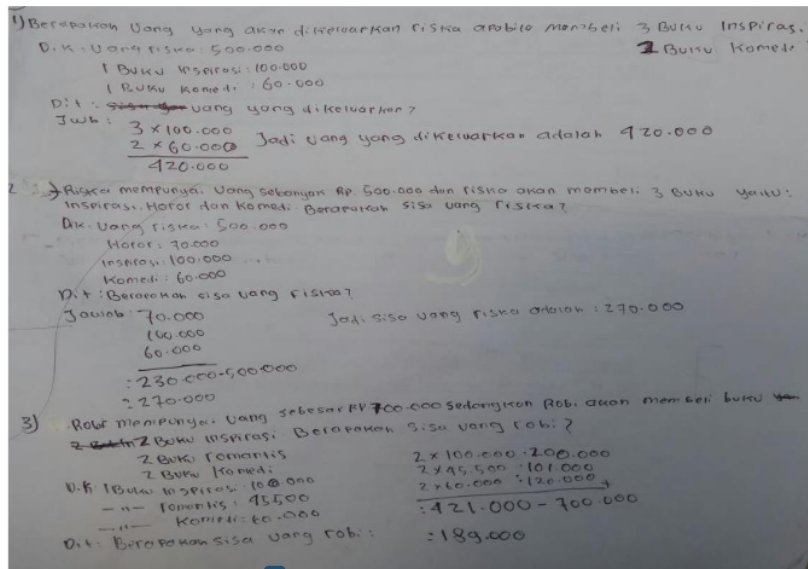 1) Berapakah Uang yang akan dikeluarkan riska apabila membeli 3 Buku Inspirasi.
2 Buku Komedi
D.K : Uang riska : 500.000
1 Buku inspirasi : 100.000
1 Buku Komedi : 60.000
Dit : uang yang dikeluarkan ?
Jwb :
3 × 100.000
2 × 60.000
420.000
Jadi uang yang dikeluarkan adalah 420.000
2 → Riska mempunyai Uang sebanyak Rp. 500.000 dan riska akan membeli 3 Buku yaitu :
Inspirasi. Horor dan Komedi. Berapakah sisa uang riska?
Dik. Uang riska : 500.000
Horor : 70.000
inspirasi : 100.000
Komedi : 60.000
Dit : Berapakah sisa uang riska?
Jawab : 70.000
100.000
60.000
: 230.000-500.000
: 270.000
Jadi sisa uang riska adalah : 270.000
3) Robi mempunyai uang sebesar RP 700.000 Sedangkan Robi akan membeli buku
2 Buku inspirasi Berapakah sisa uang robi ?
2 Buku romantis
2 Buku Komedi
D.K : 1 Buku inspirasi : 100.000
romantis : 45500
Komedi : 60.000
Dit : Berapakah sisa uang robi :
2 × 100.000 : 200.000
2 × 45.500 : 101.000
2 × 60.000 : 120.000 +
: 421.000 - 700.000
: 189.000